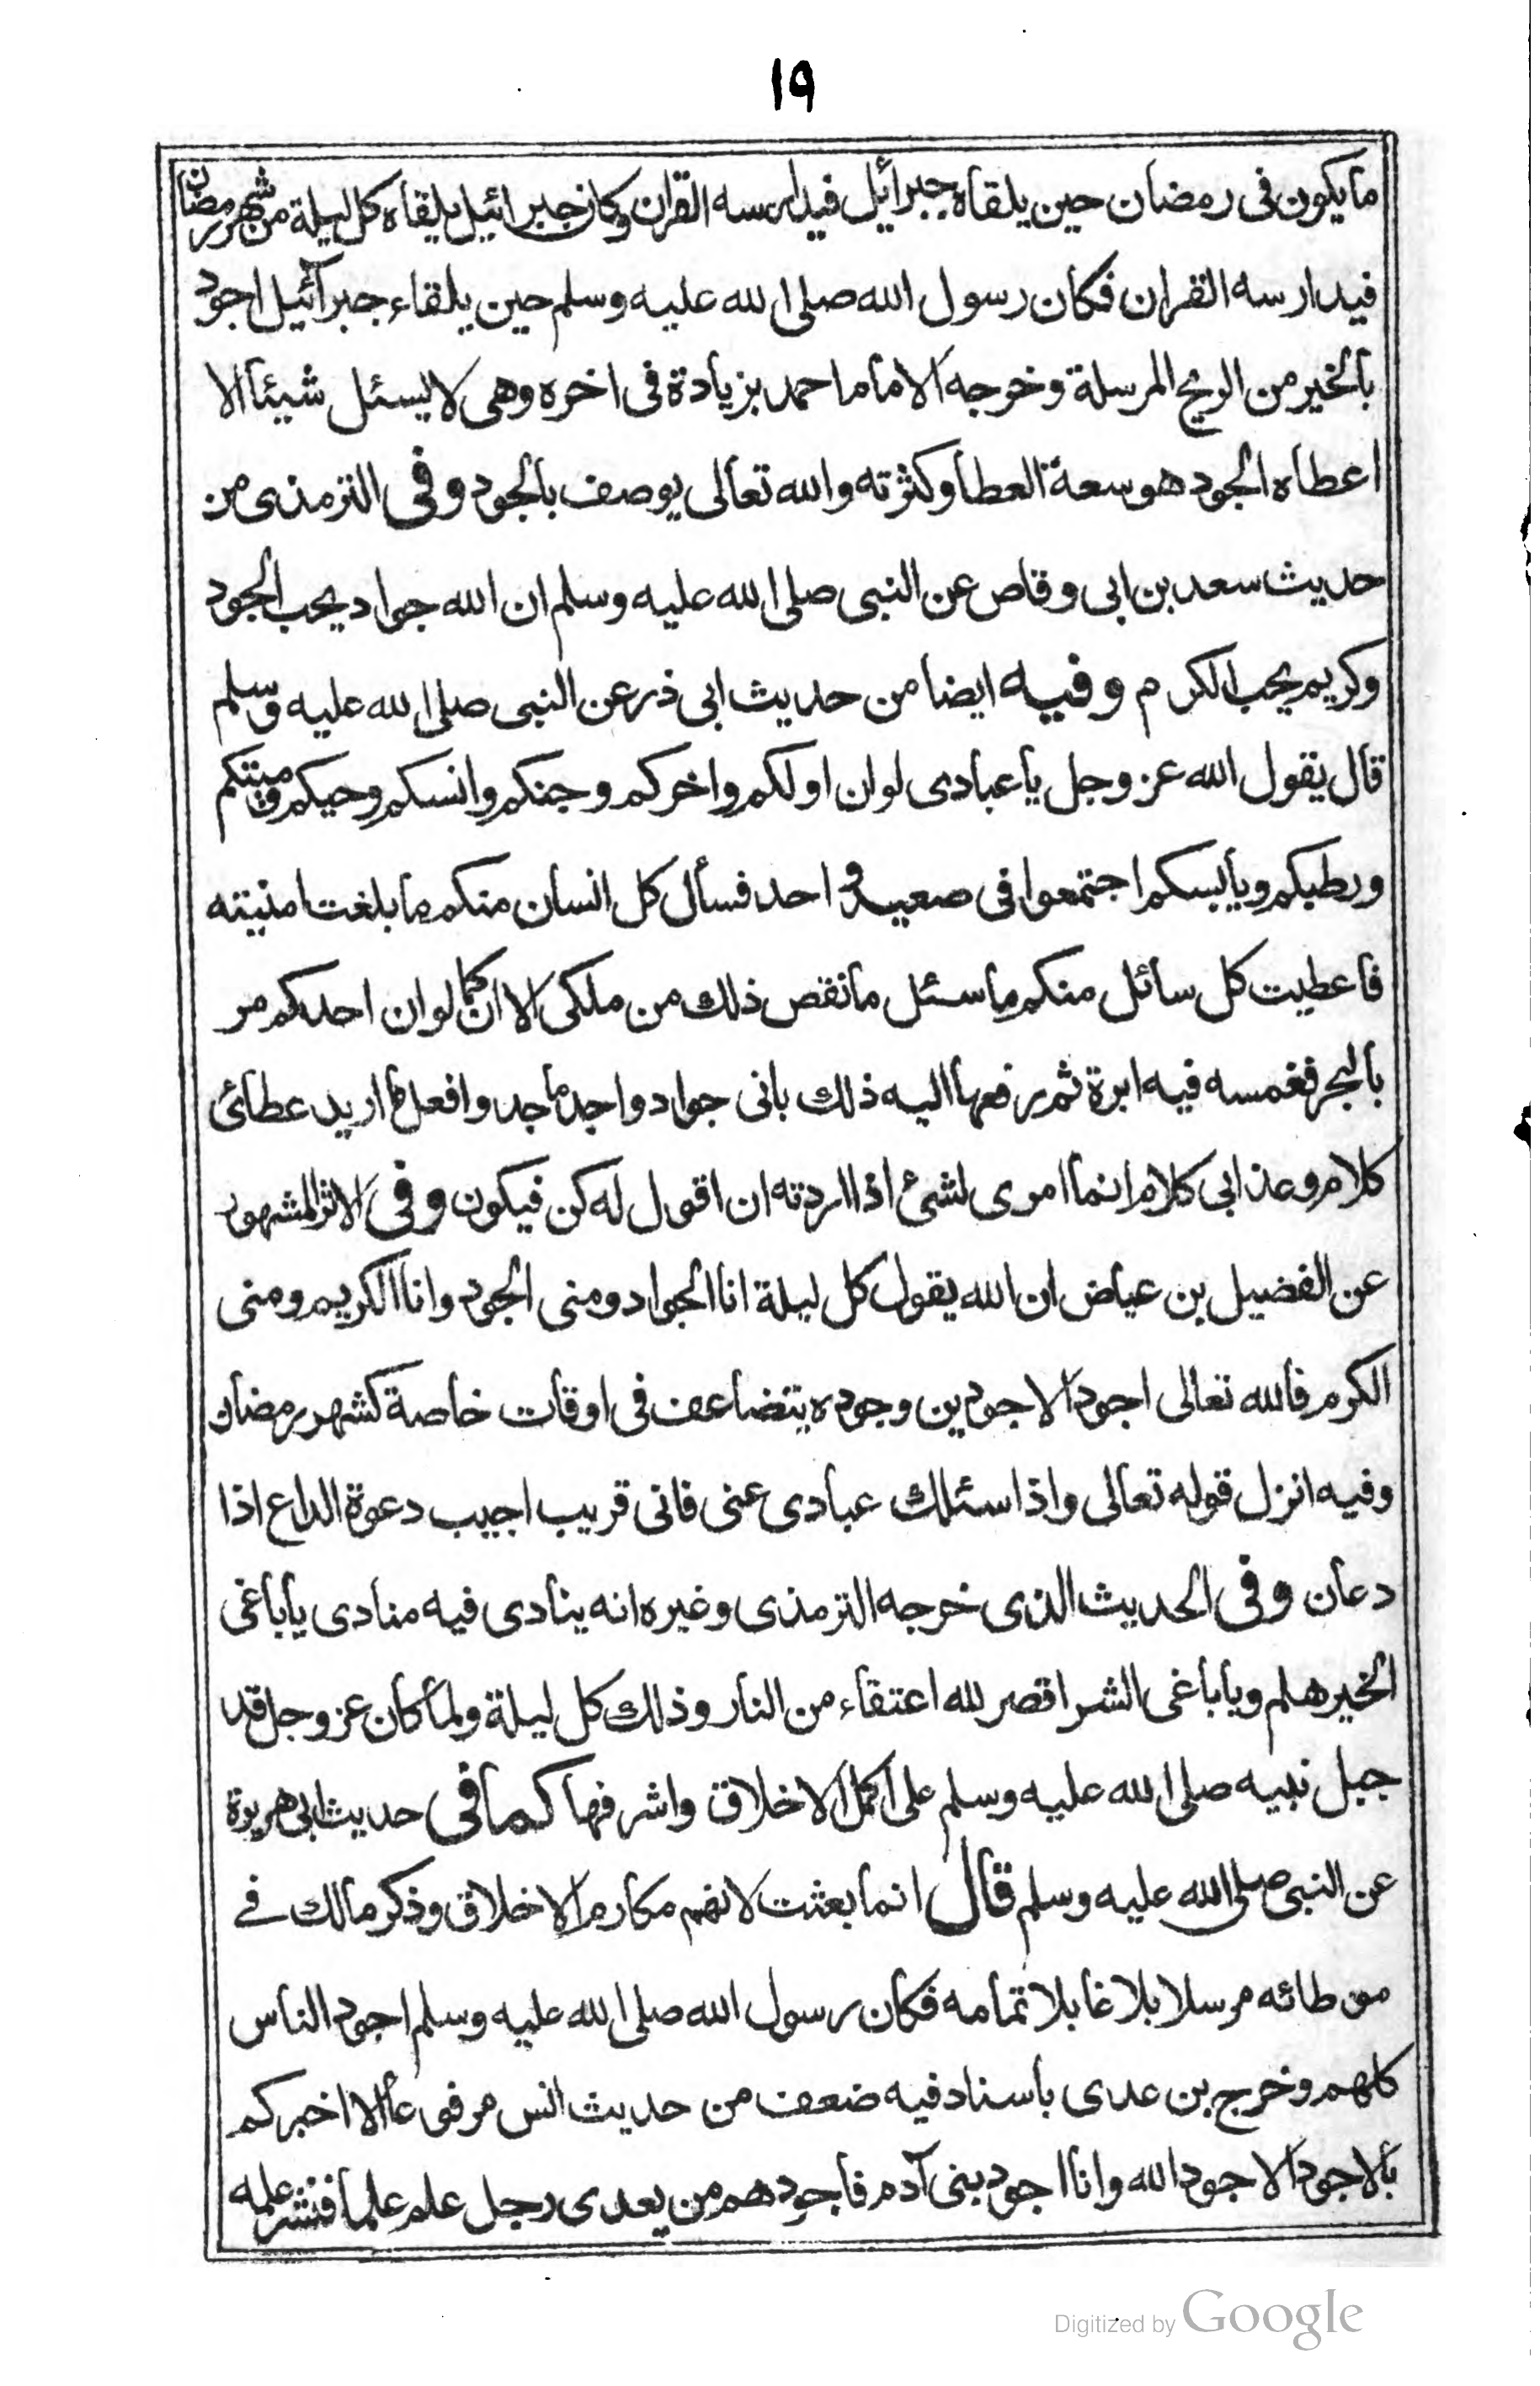 ١٩
ما يكون فى رمضان حين يلقاه جبرائيل فيدارسه القران وكان جبرائيل يلقاه كل ليلة من شهر رمضان
فيدارسه القران فكان رسول الله صلى الله عليه وسلم حين يلقاء جبرآئيل اجود
بالخير من الريح المرسلة وخرجه الامام احمد بزيادة فى اخره وهى لا يسئل شيئا الا
اعطاه الجود هو سعة العطا وكثرته والله تعالى يوصف بالجود وفى الترمذى من
حديث سعد بن ابى وقاص عن النبى صلى الله عليه وسلم ان الله جواد يحب الجود
وكريم يحب الكرم وفيه ايضا من حديث ابى ذر عن النبى صلى الله عليه وسلم
قال يقول الله عز وجل يا عبادى لو ان اولكم واخركم وجنكم وانسكم وحيكم وميتكم
ورطبكم ويابسكم اجتمعوا فى صعيد واحد فسأل كل انسان منكم ما بلغت امنيته
فاعطيت كل سائل منكم ما سئل ما نقص ذلك من ملكى الا كما لو ان احدكم مر
بالبحر فغمسه فيه ابرة ثم رفعها اليه ذلك بانى جواد واجد ماجد وافعل ما اريد عطائ
كلام وعذابى كلام انما امرى لشئ اذا اردته ان اقول له كن فيكون وفى الاثر المشهور
عن الفضيل بن عياض ان الله يقول كل ليلة انا الجواد ومنى الجود وانا الكريم ومنى
الكرم فالله تعالى اجود الاجودين وجوده يتضاعف فى اوقات خاصة كشهر رمضان
وفيه انزل قوله تعالى واذا سئلك عبادى عنى فانى قريب اجيب دعوة الداع اذا
دعان وفى الحديث الذى خرجه الترمذى وغيره انه ينادى فيه منادى يا باغى
الخير هلم ويا باغى الشر اقصر لله اعتقاء من النار وذلك كل ليلة ولما كان عز وجل قد
جبل نبيه صلى الله عليه وسلم على اكمل الاخلاق واشرفها كما فى حديث ابى هريرة
عن النبى صلى الله عليه وسلم قال انما بعثت لاتمم مكارم الاخلاق وذكر مالك فے
موطائه مرسلا بلاغا بلا تمامه فكان رسول الله صلى الله عليه وسلم اجود الناس
كلهم وخرج بن عدى باسناد فيه ضعف من حديث انس مرفوعا الا اخبركم
بالاجود الاجود الله وانا اجود بنى آدم فاجودهم من بعدى رجل علم علما فنشر علمه
Digitized by Google